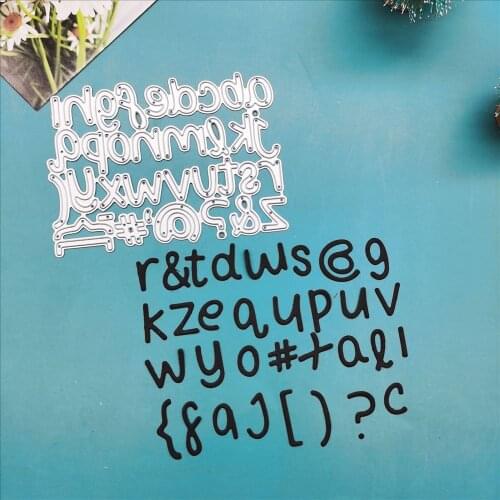 abcdefghi
jklmnopq
rstuvwxyz
z&?@'#
r&tdws@g
kzequpuv
wyo#+ali
{gaJ[)?c